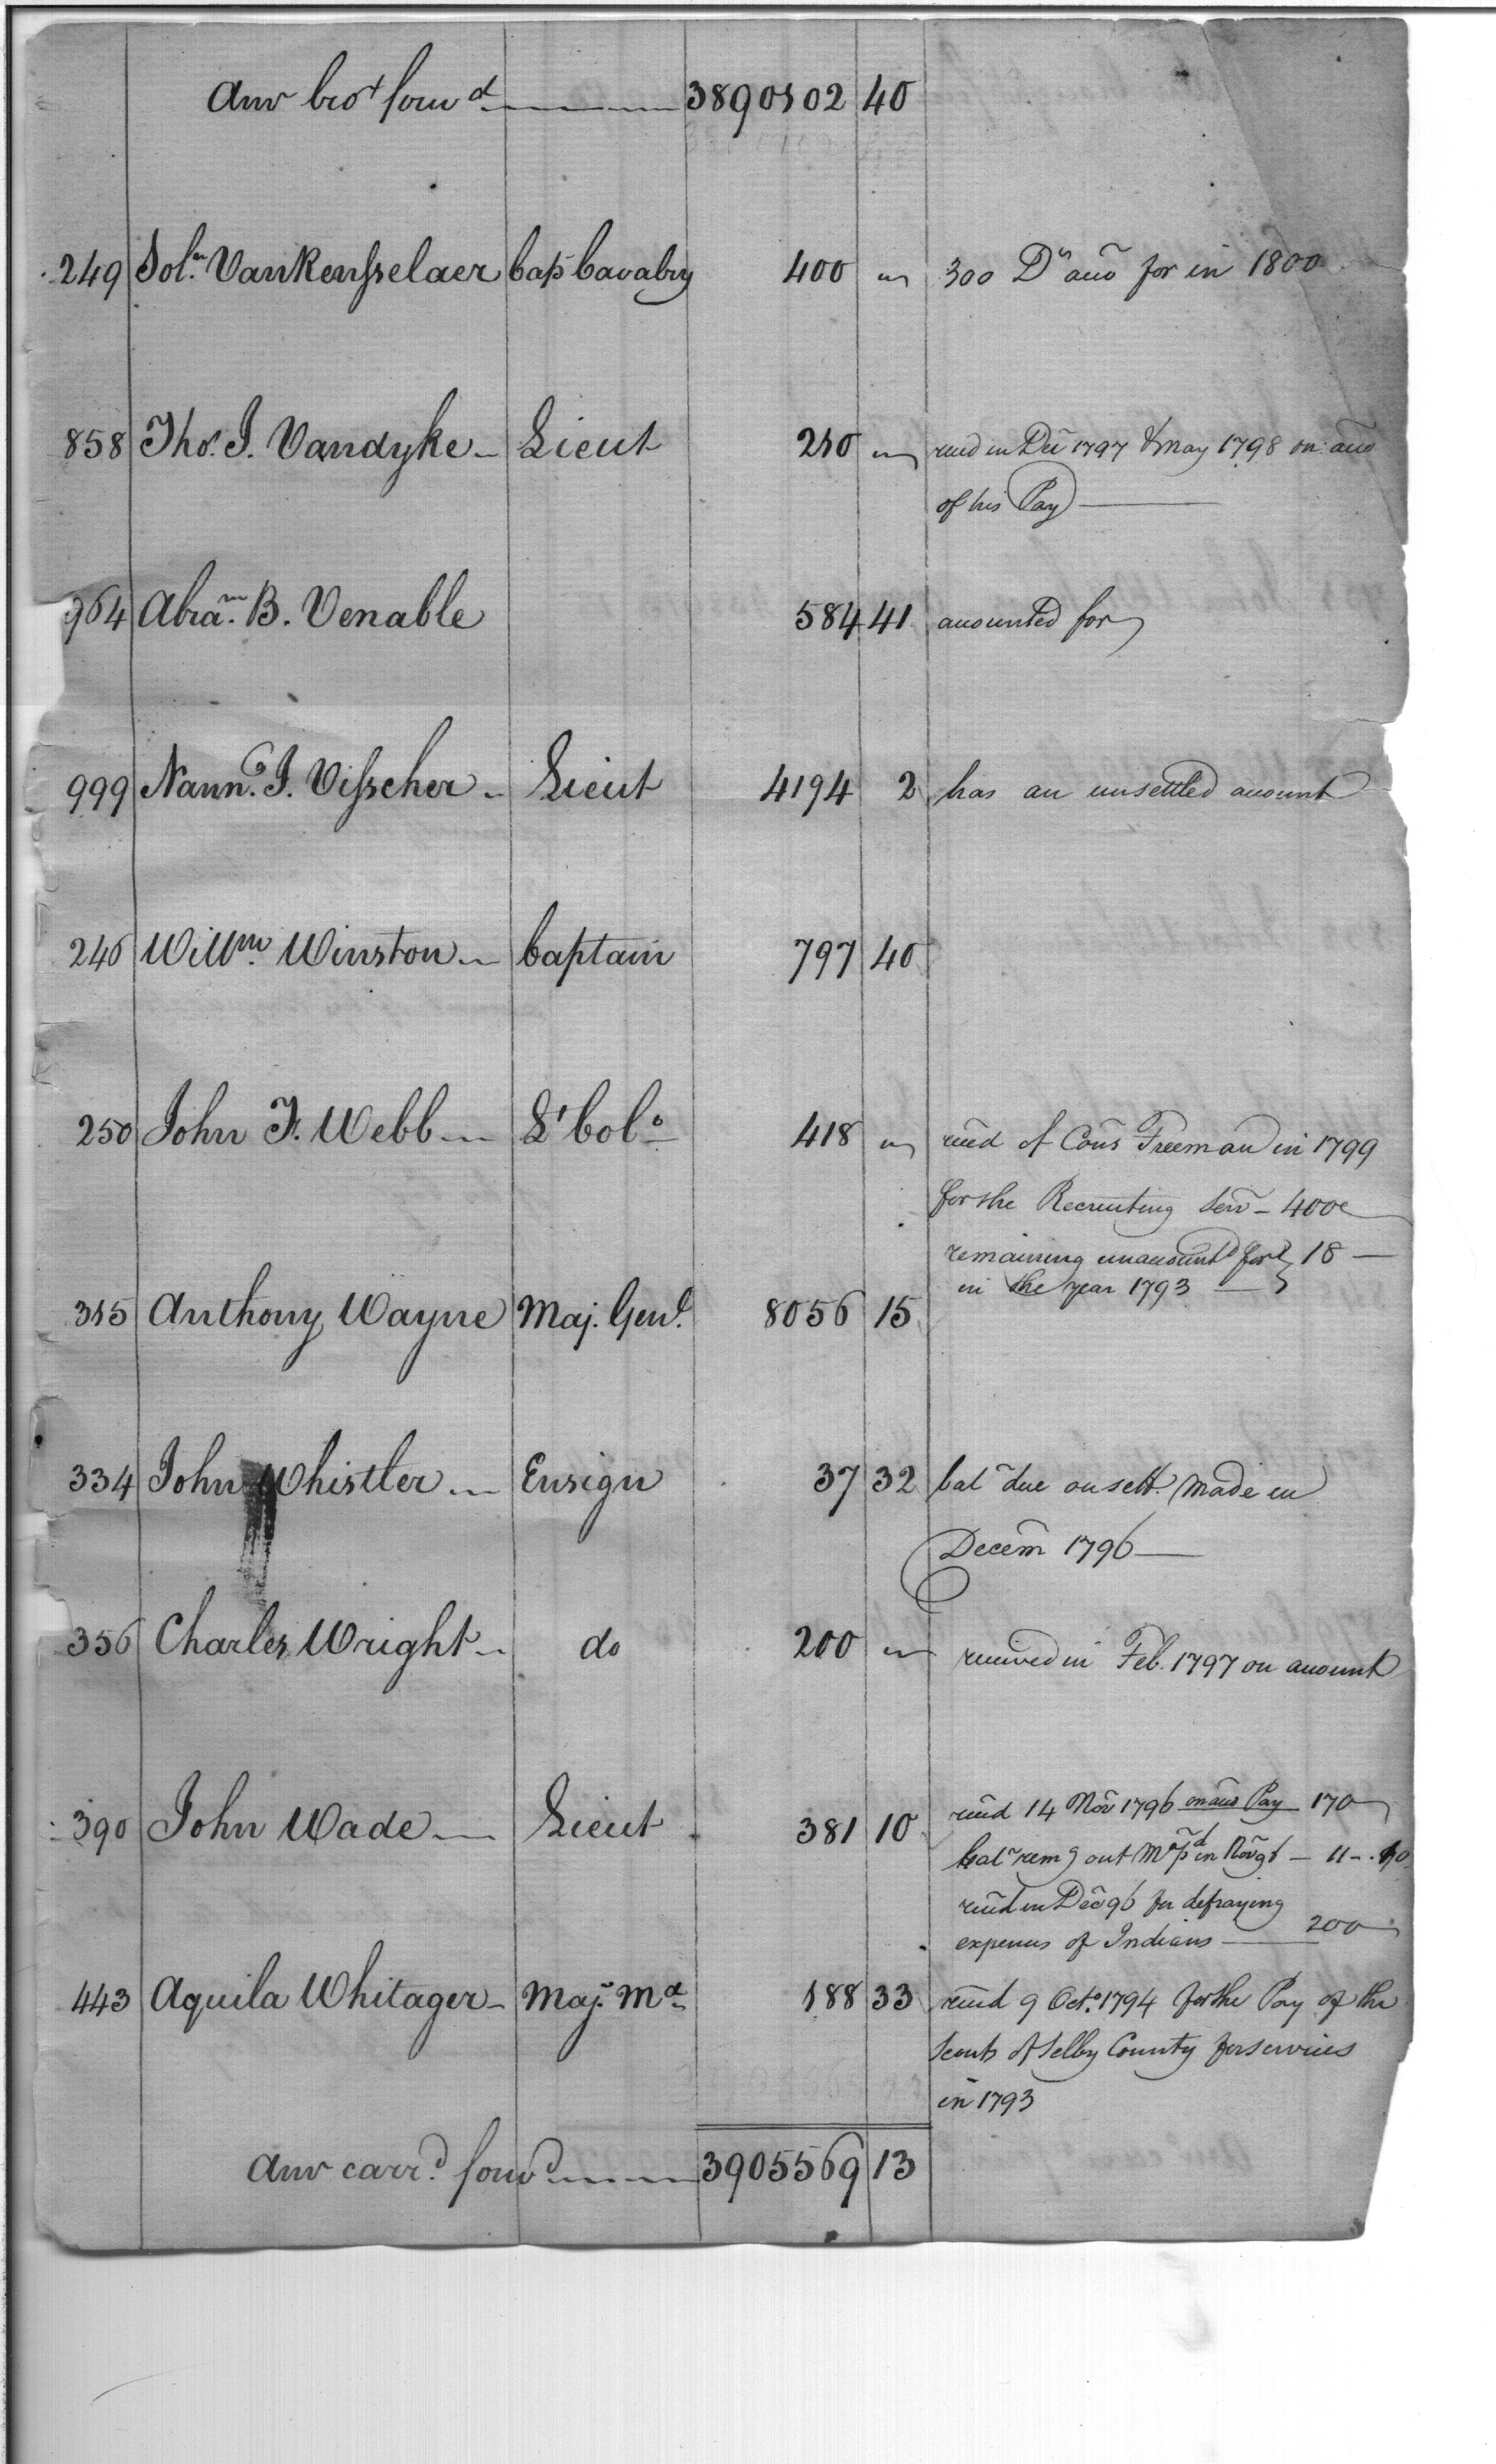 Amr bro.t forw.d 3890102 40
249 Sol.n Vanrensselaer Capt Cavalry 400 " 300 Drs acco for in 1800
858 Tho.s J. Vandyke Lieut 210 " recd in Dec 1797 & May 1798 on acco
of his Pay
964 Abra.m B. Venable 584 41 accounted for
999 Nann.g J. Visscher Lieut 4194 2 has an unsettled account
246 Will.m Winston Captain 797 40
250 John F. Webb Lt Col.o 418 " recd of Cons Freeman in 1799
for the Recruiting Serv - 400
remaining unaccountd for } 18 -
in the year 1793
315 Anthony Wayne Maj. Gen.l 8056 15
334 John Whistler Ensign 37 32 bal due on sett. made in
Decem 1796
356 Charles Wright do 200 " received in Feb. 1797 on account
390 John Wade Lieut 381 10 recd 14 Nov 1796 on acco Pay 170
bal remg out in Nov 96 - 11 - 10
recd in Dec 96 for defraying
expences of Indians 200
443 Aquila Whitager Maj. M.a 188 33 recd 9 Oct.o 1794 for the Pay of the
Scouts of Selby County for services
in 1793
Amr carr.d forw.d 3905569 13